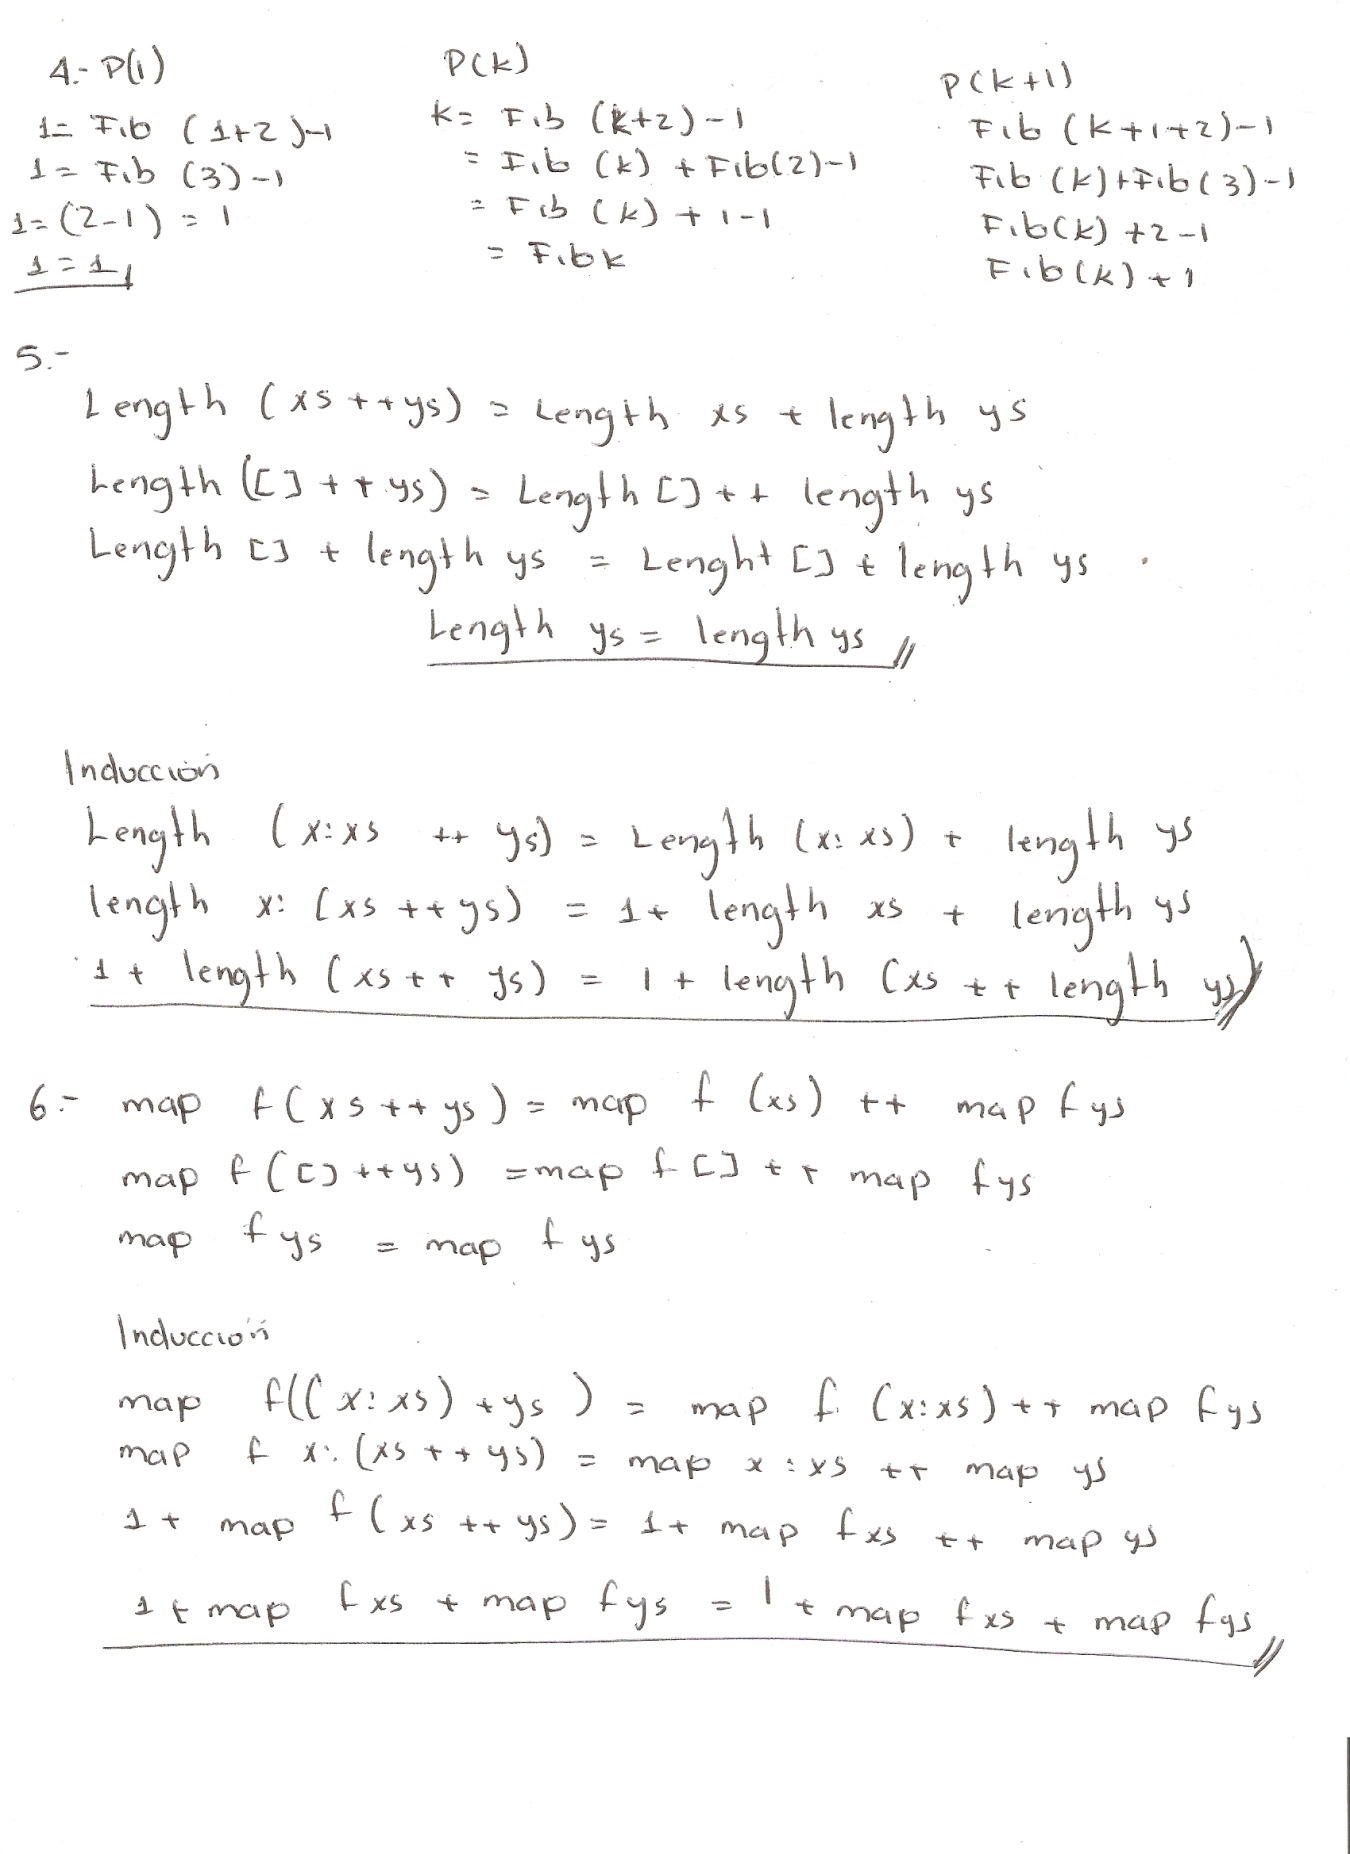 4.- P(1)
1= Fib (1+2)-1
1= Fib (3)-1
1=(2-1) = 1
1=1
P(k)
k= Fib (k+2)-1
= Fib (k) + Fib(2)-1
= Fib (k) + 1-1
= Fib k
P(k+1)
Fib (k+1+2)-1
Fib (k)+Fib(3)-1
Fib(k) +2-1
Fib(k)+1
5.-
Length (xs ++ys) = Length xs + length ys
Length ([] ++ys) = Length [] ++ length ys
Length [] + length ys = Lenght [] + length ys
Length ys = length ys //
Inducción
Length (x:xs ++ ys) = Length (x:xs) + length ys
length x: (xs ++ys) = 1+ length xs + length ys
1+ length (xs++ ys) = 1+ length (xs ++ length ys) //
6.- map f(xs ++ ys) = map f (xs) ++ map f ys
map f([] ++ys) =map f [] ++ map f ys
map f ys = map f ys
Inducción
map f((x:xs) +ys ) = map f (x:xs) ++ map f ys
map f x: (xs ++ys) = map x :xs ++ map ys
1+ map f(xs ++ ys) = 1+ map f xs ++ map ys
1+ map f xs + map f ys = 1+ map f xs + map f ys //